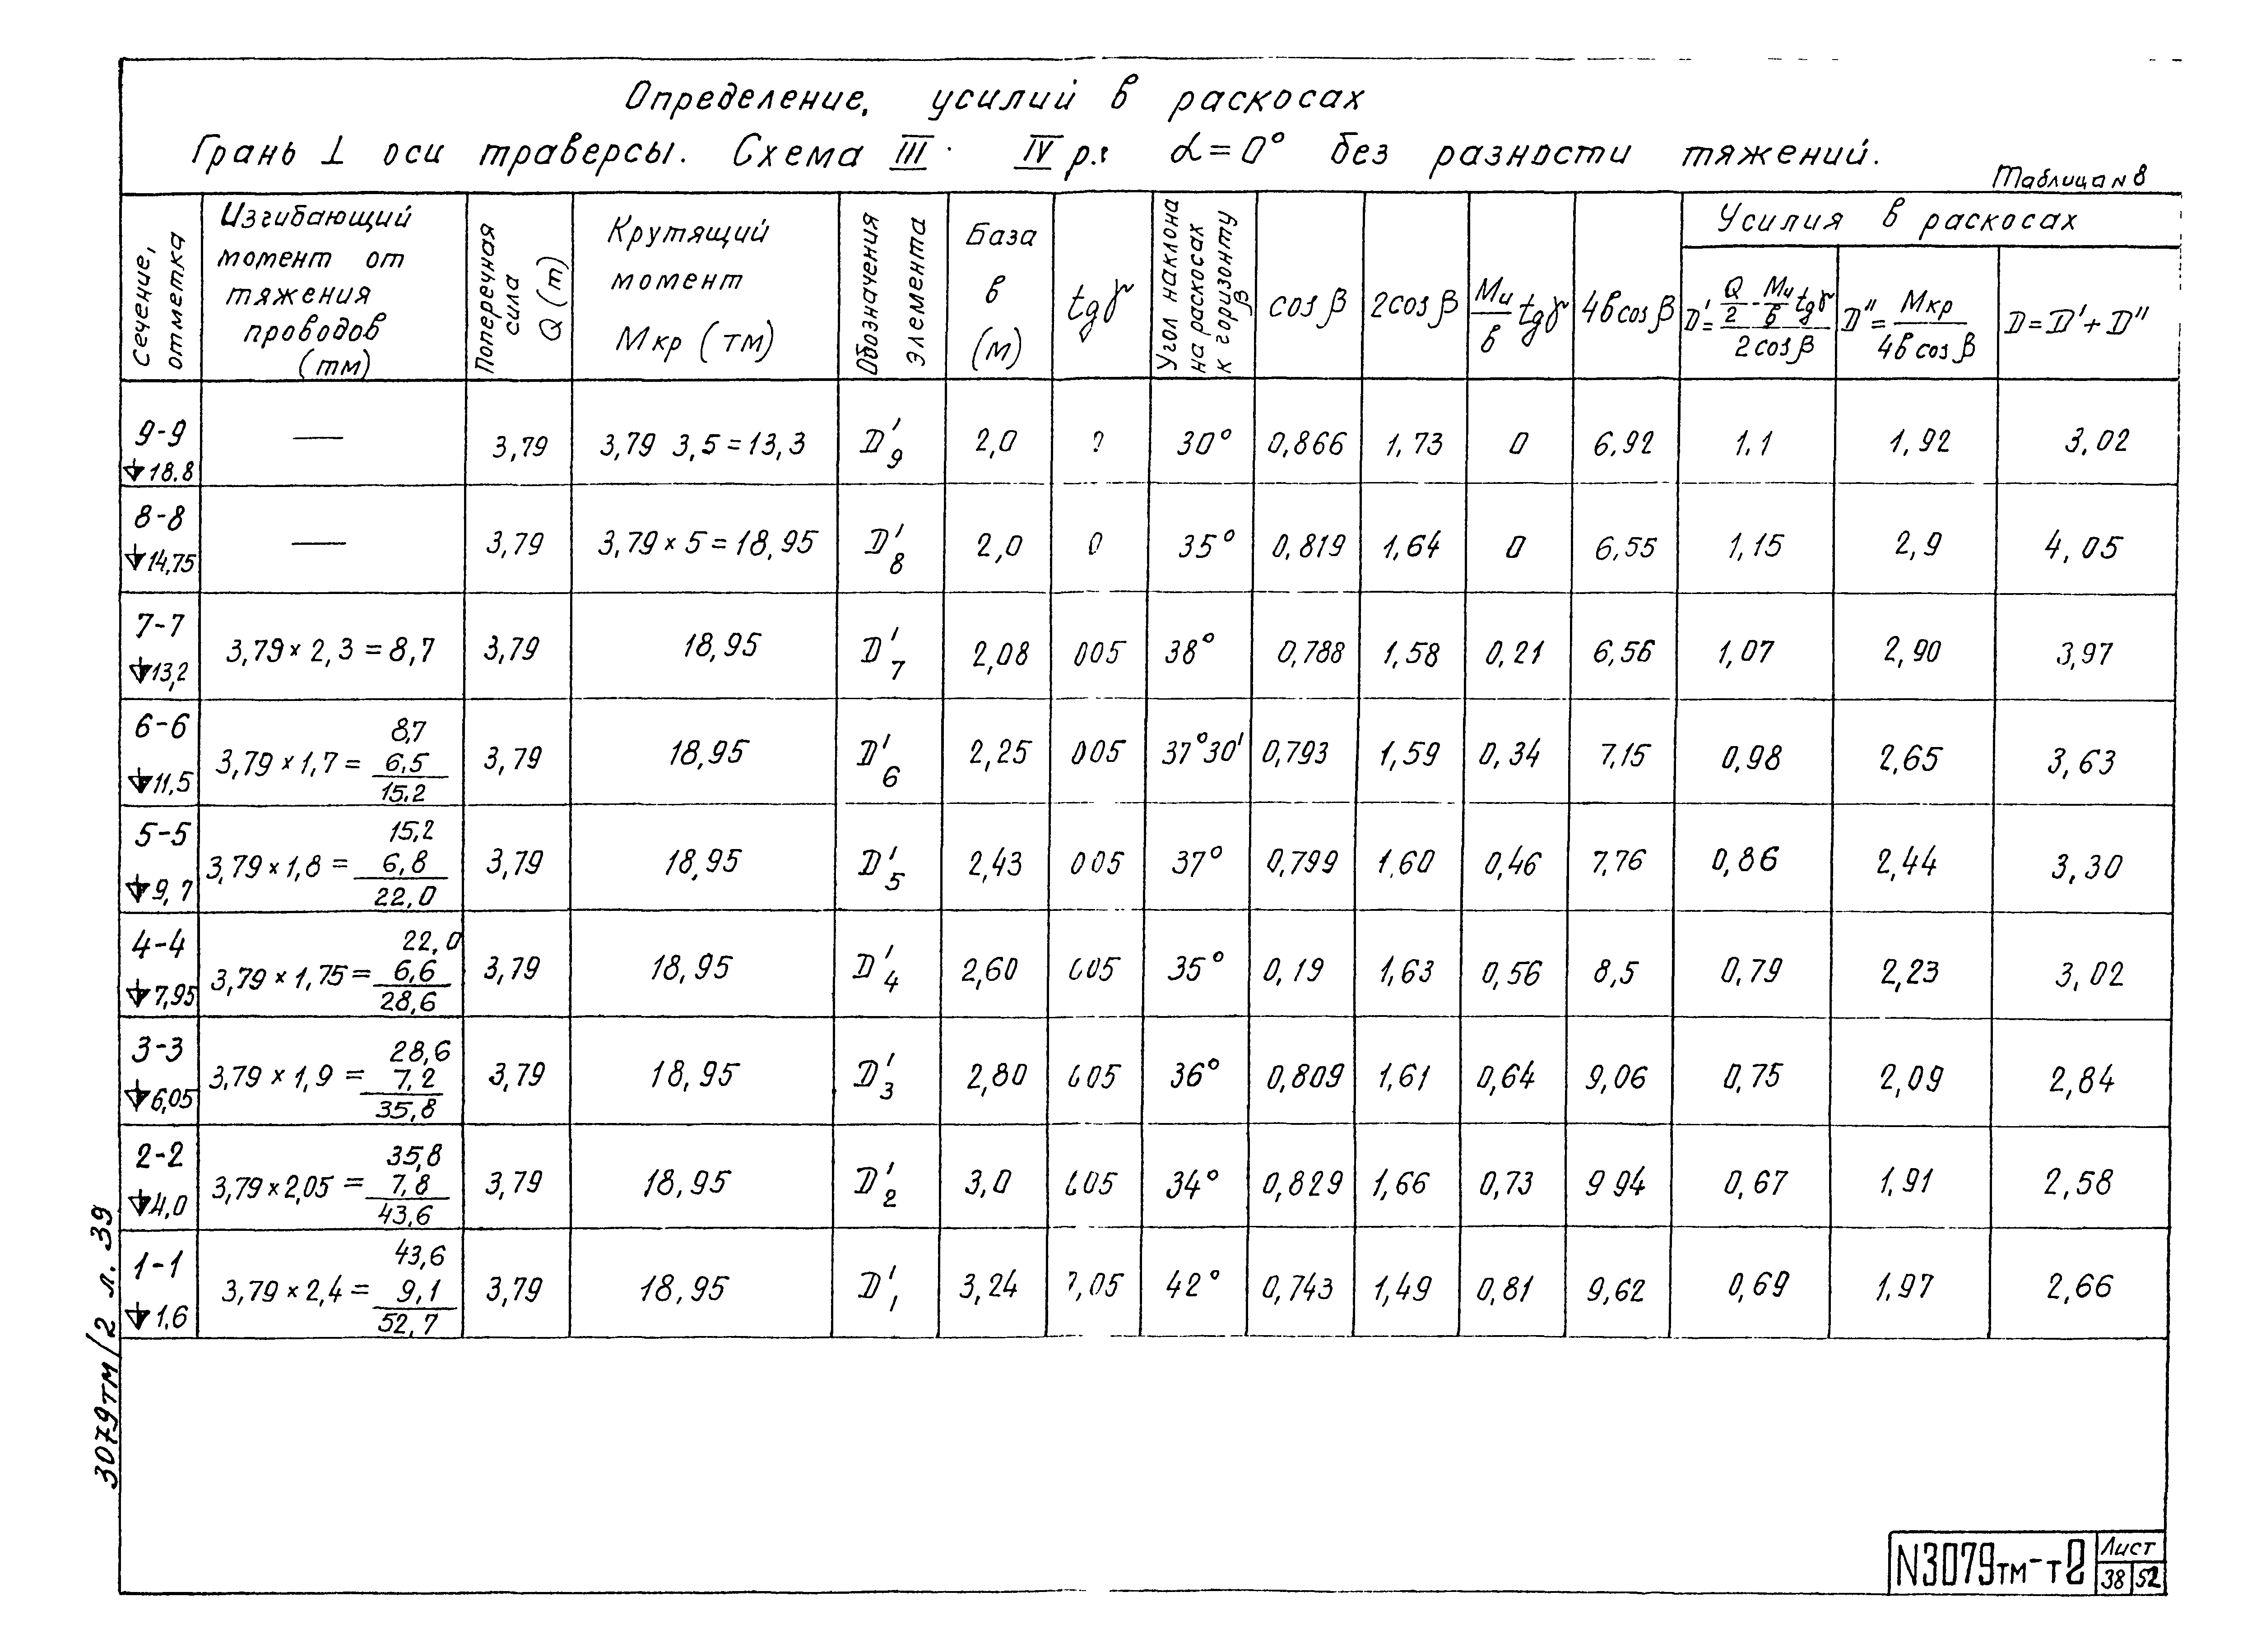 Определение, усилий в раскосах
Грань ⊥ оси траверсы. Схема III · IV р.г α=0° без разности тяжений.
Таблица N 8
Сечение, отметка | Изгибающий момент от тяжения проводов (тм) | Поперечная сила Q (т) | Крутящий момент Мкр (тм) | Обозначения элемента | База в (м) | tgγ | Угол наклона на раскосах к горизонту β | cosβ | 2cosβ | Ми/в tgγ | 4в cosβ | Усилия в раскосах
D' = (Q/2 - Ми/в tgγ) / 2cosβ | D'' = Мкр / 4в cosβ | D = D' + D''
9-9 ▽18.8 | — | 3,79 | 3,79 3,5 = 13,3 | D'9 | 2,0 | | 30° | 0,866 | 1,73 | 0 | 6,92 | 1.1 | 1,92 | 3,02
8-8 ▽14,75 | — | 3,79 | 3,79 × 5 = 18,95 | D'8 | 2,0 | 0 | 35° | 0,819 | 1,64 | 0 | 6,55 | 1,15 | 2,9 | 4,05
7-7 ▽13,2 | 3,79 × 2,3 = 8,7 | 3,79 | 18,95 | D'7 | 2,08 | 005 | 38° | 0,788 | 1,58 | 0,21 | 6,56 | 1,07 | 2,90 | 3,97
6-6 ▽11,5 | 3,79 × 1,7 = 8,7 6,5 15,2 | 3,79 | 18,95 | D'6 | 2,25 | 005 | 37°30' | 0,793 | 1,59 | 0,34 | 7,15 | 0,98 | 2,65 | 3,63
5-5 ▽9,7 | 3,79 × 1,8 = 15,2 6,8 22,0 | 3,79 | 18,95 | D'5 | 2,43 | 005 | 37° | 0,799 | 1.60 | 0,46 | 7,76 | 0,86 | 2,44 | 3,30
4-4 ▽7,95 | 3,79 × 1,75 = 22,0 6,6 28,6 | 3,79 | 18,95 | D'4 | 2,60 | 005 | 35° | 0,19 | 1,63 | 0,56 | 8,5 | 0,79 | 2,23 | 3,02
3-3 ▽6,05 | 3,79 × 1,9 = 28,6 7,2 35,8 | 3,79 | 18,95 | D'3 | 2,80 | 005 | 36° | 0,809 | 1,61 | 0,64 | 9,06 | 0,75 | 2,09 | 2,84
2-2 ▽4,0 | 3,79 × 2,05 = 35,8 7,8 43,6 | 3,79 | 18,95 | D'2 | 3,0 | 005 | 34° | 0,829 | 1,66 | 0,73 | 9 94 | 0,67 | 1,91 | 2,58
1-1 ▽1,6 | 3,79 × 2,4 = 43,6 9,1 52,7 | 3,79 | 18,95 | D'1 | 3,24 | 0,05 | 42° | 0,743 | 1,49 | 0,81 | 9,62 | 0,69 | 1,97 | 2,66
3079тм/2 л. 39
N3079тм-т2
Лист
38 52